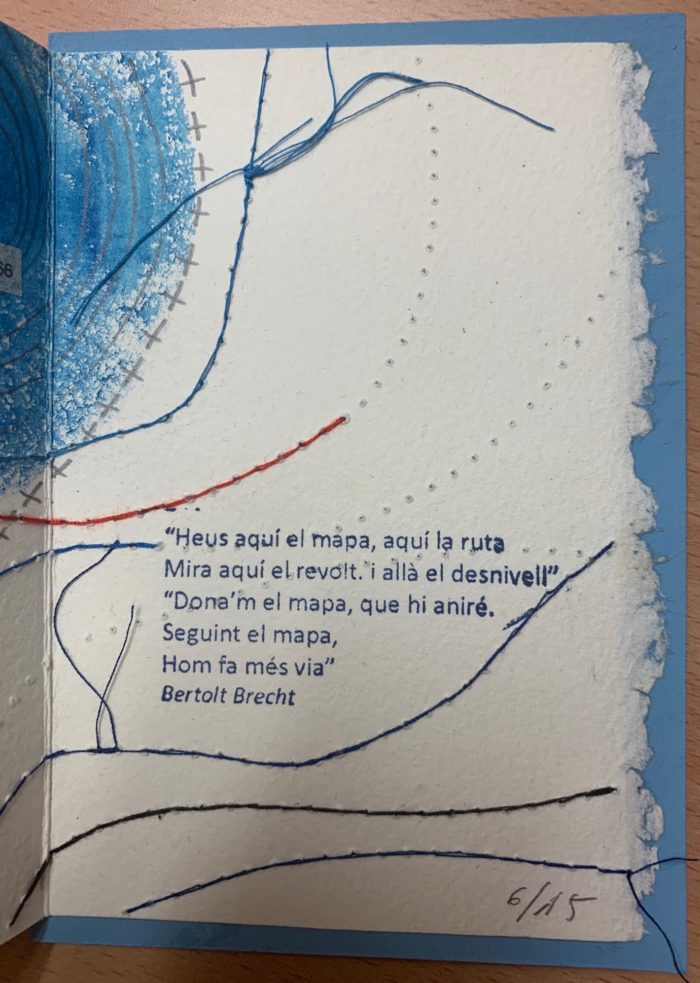 ...
“Heus aquí el mapa, aquí la ruta
Mira aquí el revolt. i allà el desnivell”
“Dona’m el mapa, que hi aniré.
Seguint el mapa,
Hom fa més via”
Bertolt Brecht
6/15